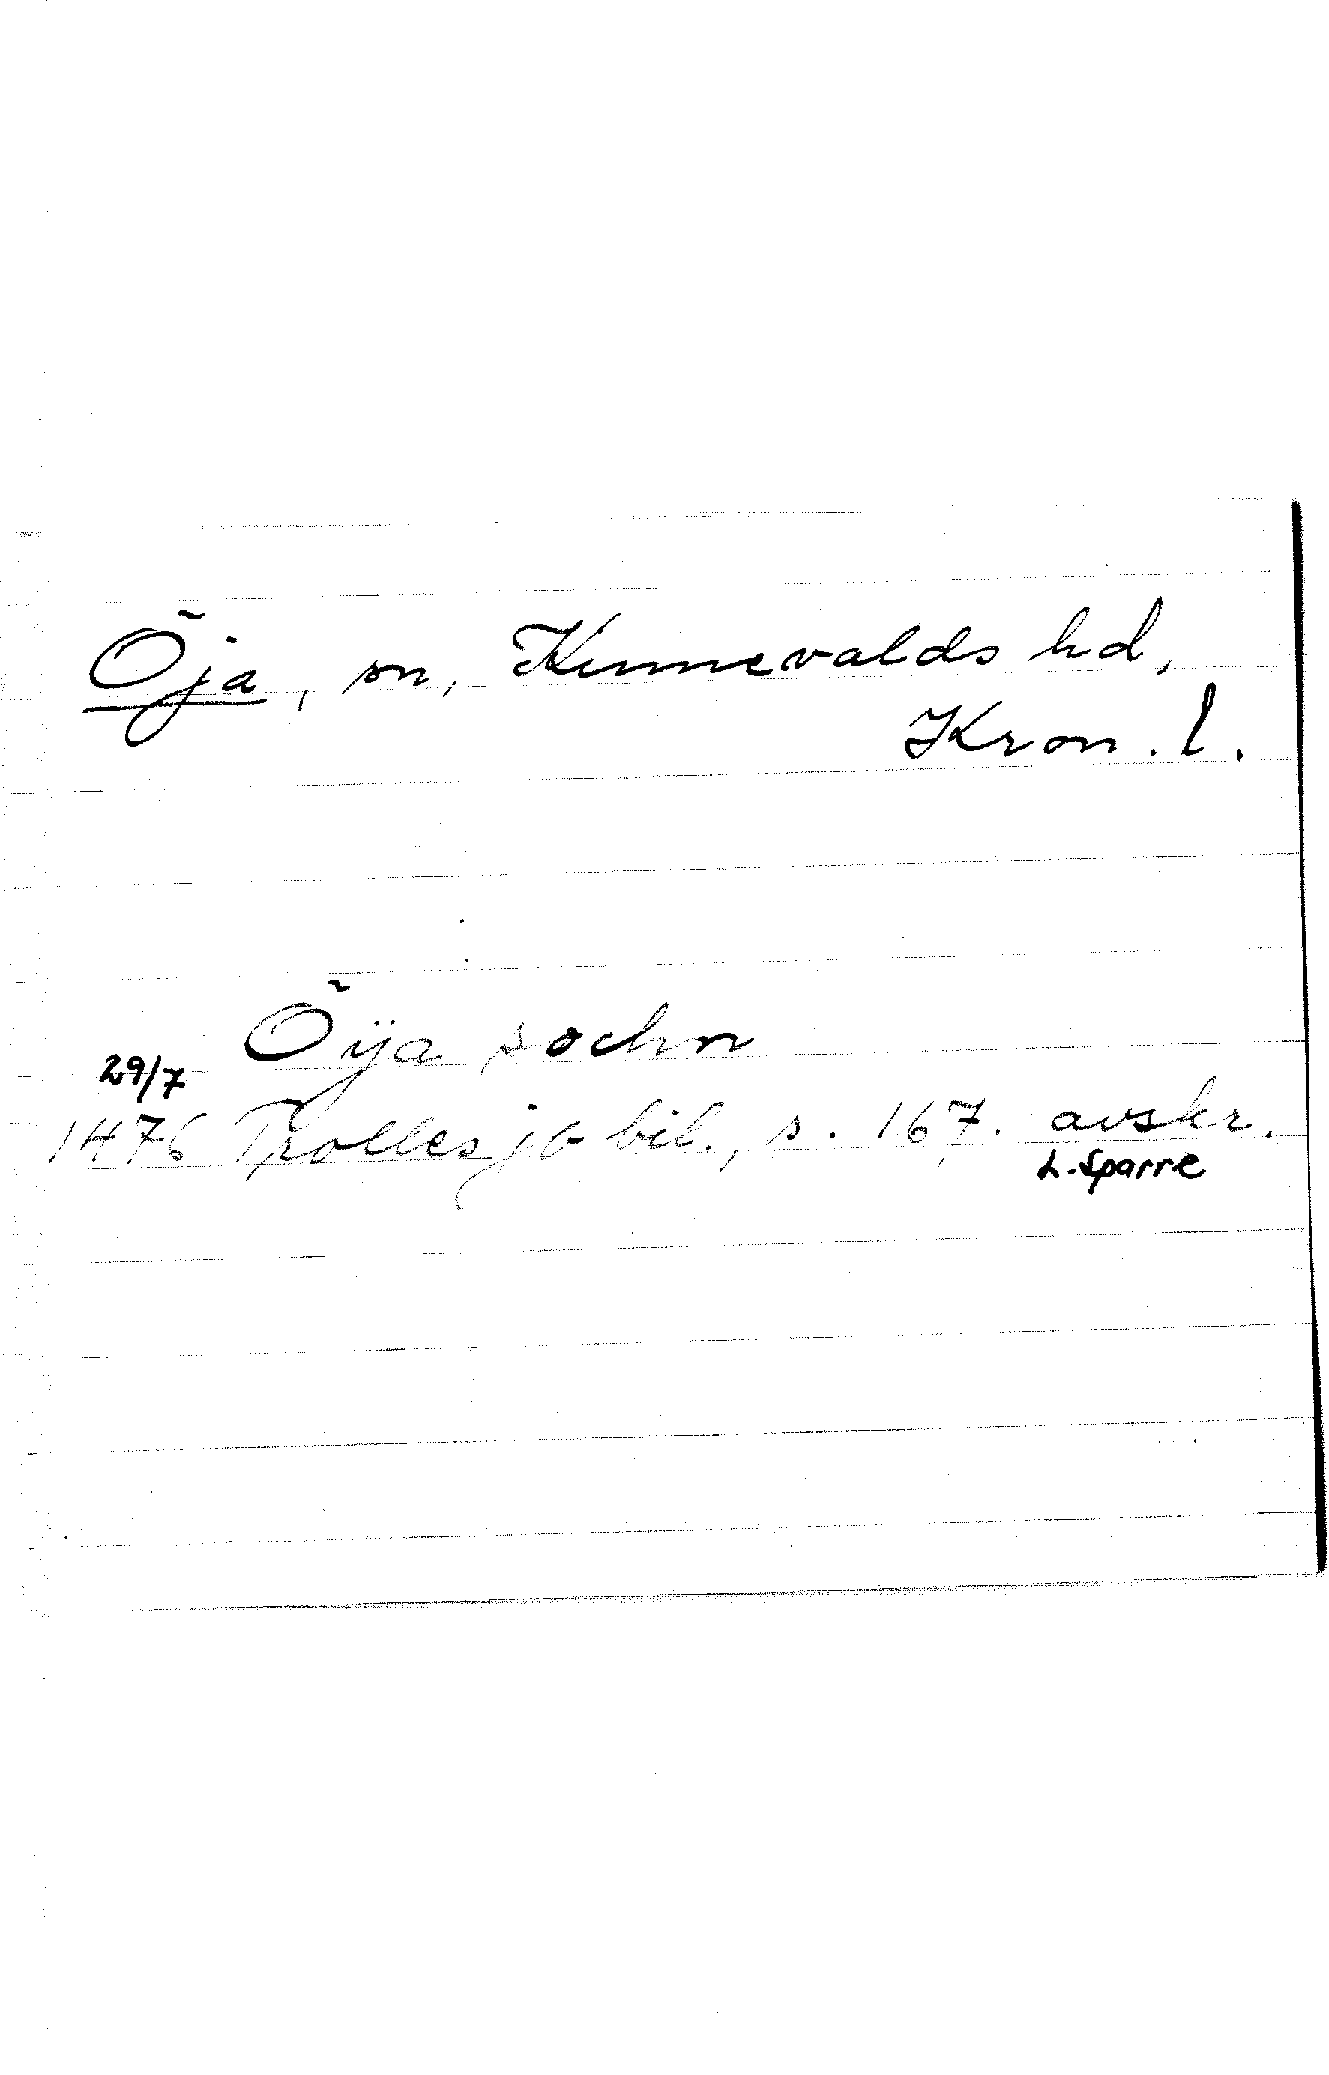 Öja, sn, Kinnevalds hd,
Kron. l.
Öÿa sochn
29/7
1476 Trolles jb bil., s. 167. avskr.
L. Sparre